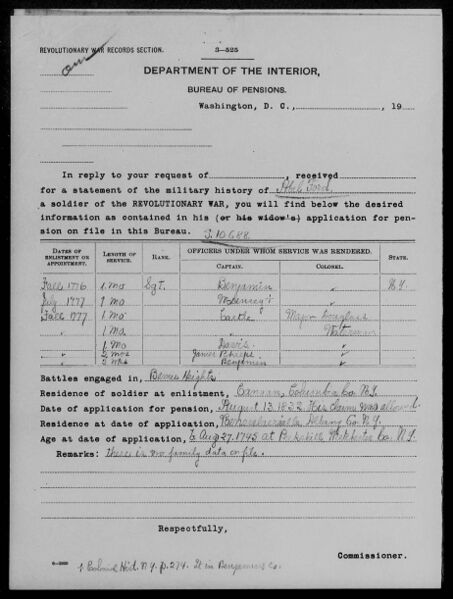 REVOLUTIONARY WAR RECORDS SECTION.
3—525
DEPARTMENT OF THE INTERIOR,
BUREAU OF PENSIONS.
Washington, D. C., 19
In reply to your request of , received
for a statement of the military history of Abel Ford
a soldier of the REVOLUTIONARY WAR, you will find below the desired
information as contained in his (or his widow's) application for pen-
sion on file in this Bureau. S. 10688
DATES OF ENLISTMENT OR APPOINTMENT. LENGTH OF SERVICE. RANK. OFFICERS UNDER WHOM SERVICE WAS RENDERED. STATE.
CAPTAIN. COLONEL.
Fall 1776 1 mo Sgt. Benjamin N.Y.
July 1777 1 Mo
Fall 1777 1 mo Major
" 1 Mo " Waterman
" 1 Mo Davis "
" 2 mos James "
" 2 Benjamin "
Battles engaged in, Bemis Heights
Residence of soldier at enlistment, Canaan, Columbia Co. N.Y.
Date of application for pension, August 13, 1832. His claim was allowed.
Residence at date of application, Albany Co. N.Y.
Age at date of application, Aug 27, 1745 at Peekskill Westchester Co. N.Y.
Remarks: There is no family data on file.
Respectfully,
Commissioner.
Hist. N.Y. p. 274. Benjamin's Co.